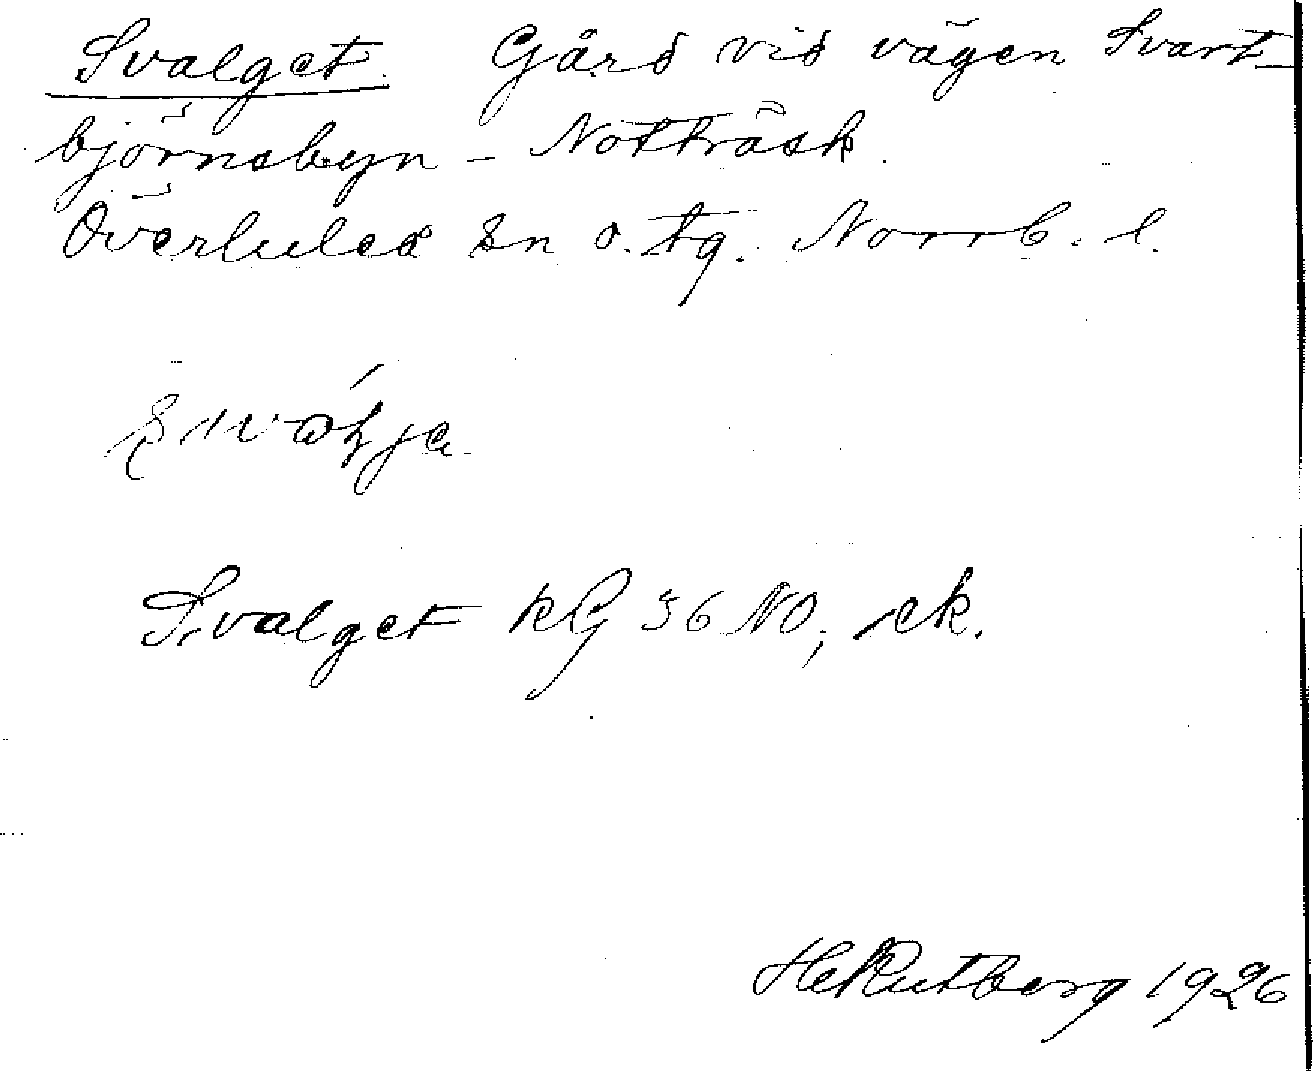 Svalget. Gård vid vägen Svart-
björnsbyn - Notträsk.
Överluleå sn o. tg. Norrb. l.
Svalget RG 36 NO, ek.
H Rutberg 1926